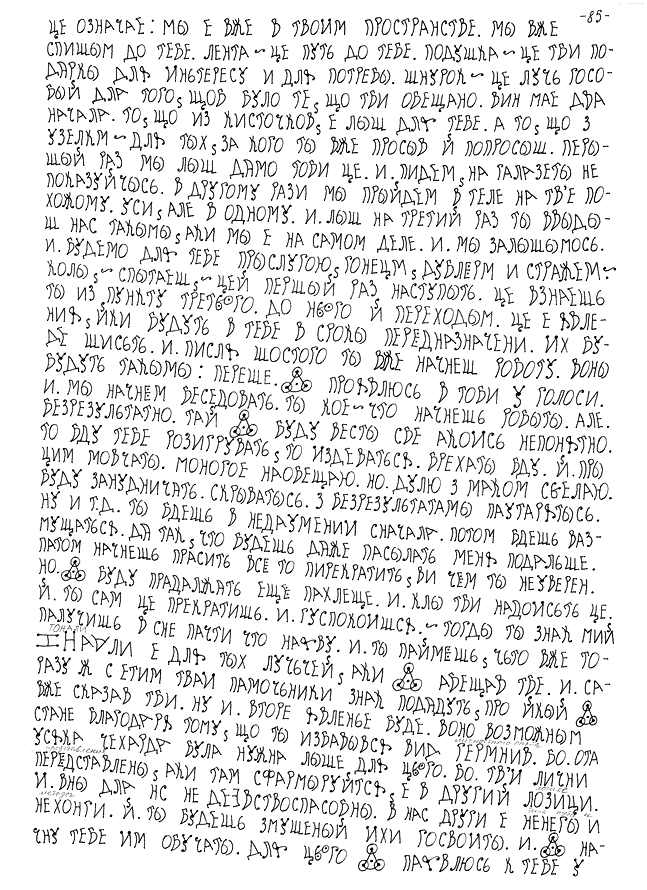 -85-
ЦЕ ОЗНАЧАЕ: МЫ Е ВЖЕ В ТВОИМ ПРОСТРАНСТВЕ. МЫ ВЖЕ
СПИШЫМ ДО ТЕБЕ. ЛЕНТА~ЦЕ ПУТЬ ДО ТЕБЕ. ПОДУШКА~ЦЕ ТВИ ПО-
ДАРКЫ ДЛЯ ИНЬТЕРЕСУ И ДЛЯ ПОТРЕБЫ. ШНУРОК~ЦЕ ЛУЧЬ ГОСО-
ВЫЙ ДЛЯ ТОГО, ЩОБ БУЛО ТЕ, ЩО ТВИ ОБЕЩАНО. ВИН МАЕ ДВА
НАЧАЛА. ТО, ЩО ИЗ КИСТОЧКОВ, Е ЛЫШ ДЛЯ ТЕБЕ. А ТО, ЩО З
УЗЕЛКМ~ДЛЯ ТЫХ, ЗА КОГО ТЫ ВЖЕ ПРОСЫВ Й ПОПРОСЫШ. ПЕРЫ-
ШЫЙ РАЗ МЫ ЛЫШ ДАМО ТОБИ ЦЕ. И. ПИДЕМ, НА ГАЛАЗЕТЫ НЕ
ПОКАЗУЙЧЫСЬ. В ДРУГОМУ РАЗИ МЫ ПРЫЙДЕМ В ТЕЛЕ НА ТВ'Е ПО-
ХОЖОМУ. УСИ, АЛЕ В ОДНОМУ. И. ЛЫШ НА ТРЕТИЙ РАЗ ТЫ ВВЫДЫ-
Ш НАС ТАКЫМЫ, АКИ МЫ Е НА САМОМ ДЕЛЕ. И. МЫ ЗАЛЫШЫМОСЬ.
И. БУДЕМО ДЛЯ ТЕБЕ ПРЫСЛУГОЮ, ГОНЕЦМ, ДУБЛЕРМ И СТРАЖЕМ~
КОЛЫ, ~ СПЫТАЕШ, ~ ЦЕЙ ПЕРШЫЙ РАЗ НАСТУПЫТЬ. ЦЕ ВЗНАЕШЬ
ТЫ ИЗ ПУНКТУ ТРЕТЬОГО. ДО НЬОГО Й ПЕРЕХОДЫМ. ЦЕ Е ЯВЛЕ-
НИЯ, ЙКИ БУДУТЬ В ТЕБЕ В СРОКЫ ПЕРЕДНАЗНАЧЕНИ. ИХ БУ-
ДЕ ШИСТЬ. И. ПИСЛЯ ШОСТОГО ТЫ ВЖЕ НАЧНЕШ РОБОТУ. ВОНЫ
БУДУТЬ ТАКЫМЫ: ПЕРЕШЕ. ПРОЯВЛЮСЬ В ТОБИ У ГОЛОСИ.
И. МЫ НАЧНЕМ БЕСЕДОВАТЬ. ТЫ КОЕ~ЧТО НАЧНЕШЬ РОБЫТЫ. АЛЕ.
БЕЗРЕЗУЛЬТАТНО. ТАЙ БУДУ ВЕСТЫ СБЕ АКОИСЬ НЕПОНЯТНО.
ТО БДУ ТЕБЕ РОЗИГРУВАТЬ, ТО ИЗДЕВАТЬСЯ. БРЕХАТЫ БДУ. Й. ПРЫ
ЦИМ МОВЧАТЫ. МОНОГОЕ НАОБЕЩАЮ. НО. ДУЛЮ З МАКОМ СБЕЛАЮ.
БУДУ ЗАНУДНИЧАТЬ. СКРЫВАТЫСЬ. З БЕЗРЕЗУЛЬТАТАМЫ ПАУТАРЯТЫСЬ.
НУ И Т.Д. ТЫ БДЕШЬ В НЕДАУМЕНИИ СНАЧАЛА. ПОТОМ БДЕШЬ ВАЗ-
МУЩАТЬСЯ. ДА ТАК, ЧТО БУДЕШЬ ДАЖЕ ПАСЫЛАТЬ МЕНЯ ПОДАЛЬШЕ.
ПАТОМ НАЧНЕШЬ ПРАСИТЬ ВСЕ ТО ПИРЕКРАТИТЬ, ВИ ЧЕМ ТЫ НЕУВЕРЕН.
НО. БУДУ ПРАДАЛЖАТЬ ЕЩЕ ПАХЛЕЩЕ. И. КЛЫ ТВИ НАДОИСТЬ ЦЕ.
Й. ТЫ САМ ЦЕ ПРЕКРАТИШЬ. И. ГУСПОКОИШСЯ. ~ ТОГДЫ ТЫ ЗНАК МИЙ
ПАЛУЧИШЬ В СНЕ ПАЧТИ ЧТО НАЯВУ. И. ТЫ ПАЙМЕШЬ, ЧЬТО ВЖЕ ТО-
НАЛИ Е ДЛЯ ТЫХ ЛУЧЬЧЕЙ, АКИ АБЕЩАВ ТБЕ. И. СА-
РАЗУ Ж С ЕТИМ ТВАИ ПАМОЧЬНИКИ ЗНАК ПОДАДУТЬ, ПРО ЙКЫЙ
ВЖЕ СКАЗАВ ТВИ. НУ И. ВТОРЕ ЯВЛЕНЬЕ БУДЕ. ВОНО ВОЗМОЖНЫМ
СТАНЕ БЛАГОДАРЯ ТОМУ, ЩО ТЫ ИЗБАВЫВСЯ ВИД ТЕРМИНИВ. БО. ОТА
УСЯКА ЧЕХАРДА БУЛА НУЖНА ЛЫШЕ ДЛЯ ЦЬОГО. БО. ТВ'И ЛИЧНИ
ПЕРЕДСТАВЛЕНЫ, АКИ ТАМ СФАРМЫРУЙТСЯ, Е В ДРУГИЙ ЛОЗИЦИ.
И. ВНЫ ДЛЯ НС НЕ ДЕЗВСТВОСПАСОБНЫ. В НАС ДРУГИ Е НЕНЕГЫ И
НЕХОНГИ. Й. ТЫ БУДЕШЬ ЗМУШЕНЫЙ ИХИ ГОСВОИТЫ. И. НА-
ЧНУ ТЕБЕ ИМ ОБУЧАТЫ. ДЛЯ ЦЬОГО ПАЯВЛЮСЬ К ТЕБЕ У